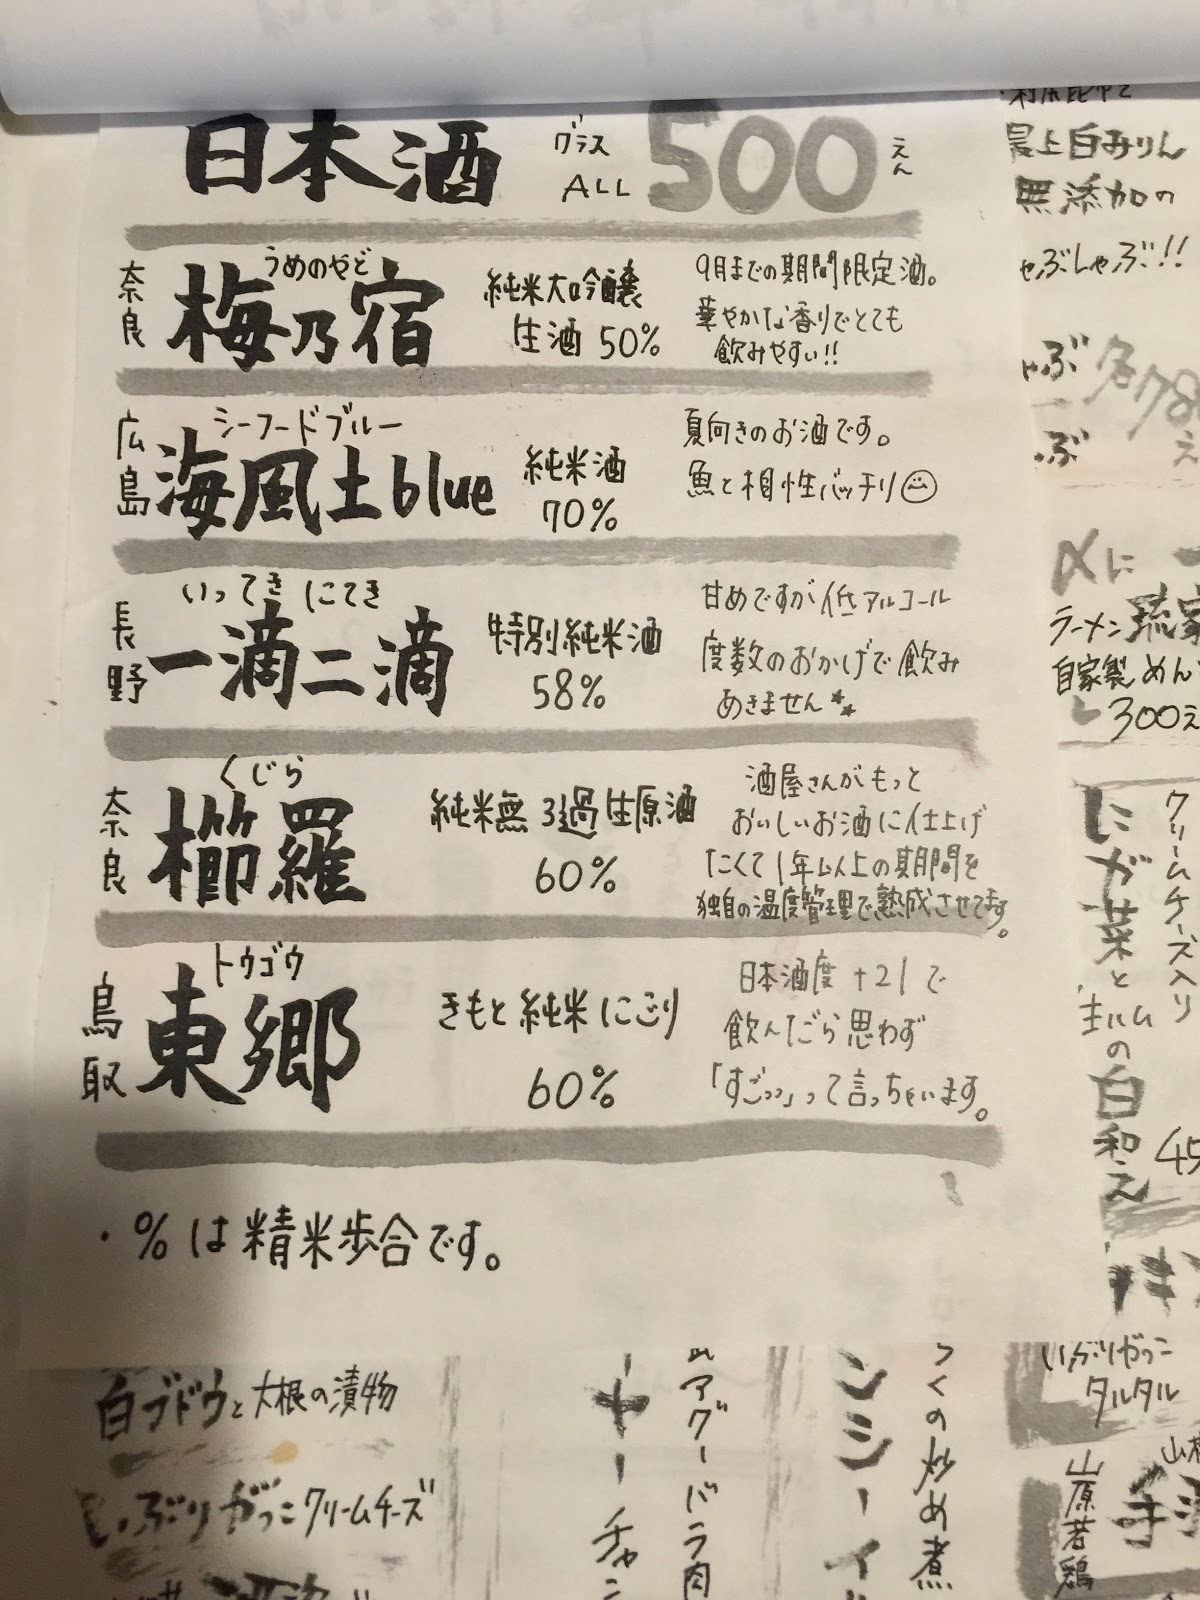 日本酒 グラス ALL 500 えん
奈良 梅乃宿 うめのやど
純米大吟醸
生酒 50%
9月までの期間限定酒。
華やかな香りでとても
飲みやすい!!
広島 海風土blue シーフードブルー
純米酒
70%
夏向きのお酒です。
魚と相性バッチリ
長野 一滴二滴 いってき にてき
特別純米酒
58%
甘めですが低アルコール
度数のおかげで飲み
あきません
奈良 櫛羅 くじら
純米無ろ過生原酒
60%
酒屋さんがもっと
おいしいお酒に仕上げ
たくて1年以上の期間を
独自の温度管理で熟成させてます。
鳥取 東郷 トウゴウ
きもと純米 にごり
60%
日本酒度 +21で
飲んだら思わず
「すごっっ」って言っちゃいます。
・%は精米歩合です。
最上白みりん
無添加の
ゃぶしゃぶ!!
ゃぶ 各78
ゃぶ え
〆に
ラーメン 琉家
自家製めん
300え
クリームチーズ入り
にが菜と
生ハム
の白和え
45
白ブドウと大根の漬物
いぶりがっこクリームチーズ
ーヤー チャン
アグーバラ肉
ンシーイ
つくの炒め煮
いぶりがっこ
タルタル
山原若鶏